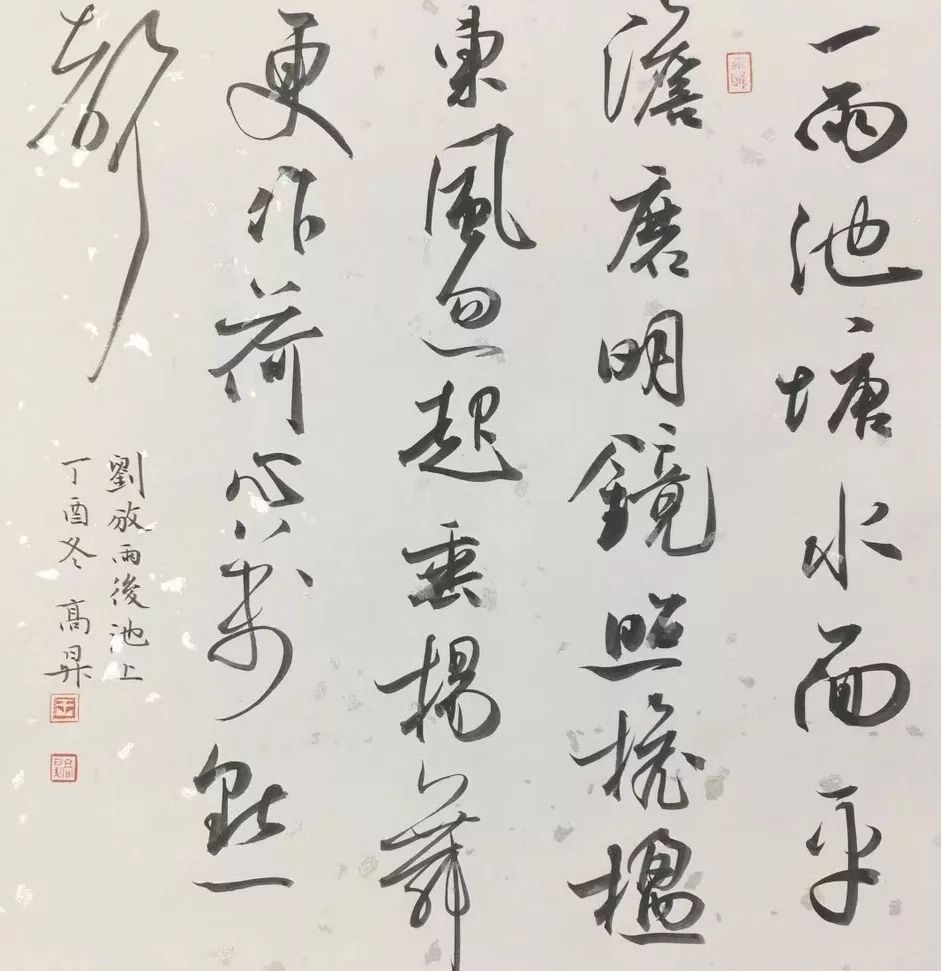 一雨池塘水面平
澹磨明鏡照檐楹
東風忽起垂楊舞
更作荷心萬點
聲
劉攽雨後池上
丁酉冬 高昇